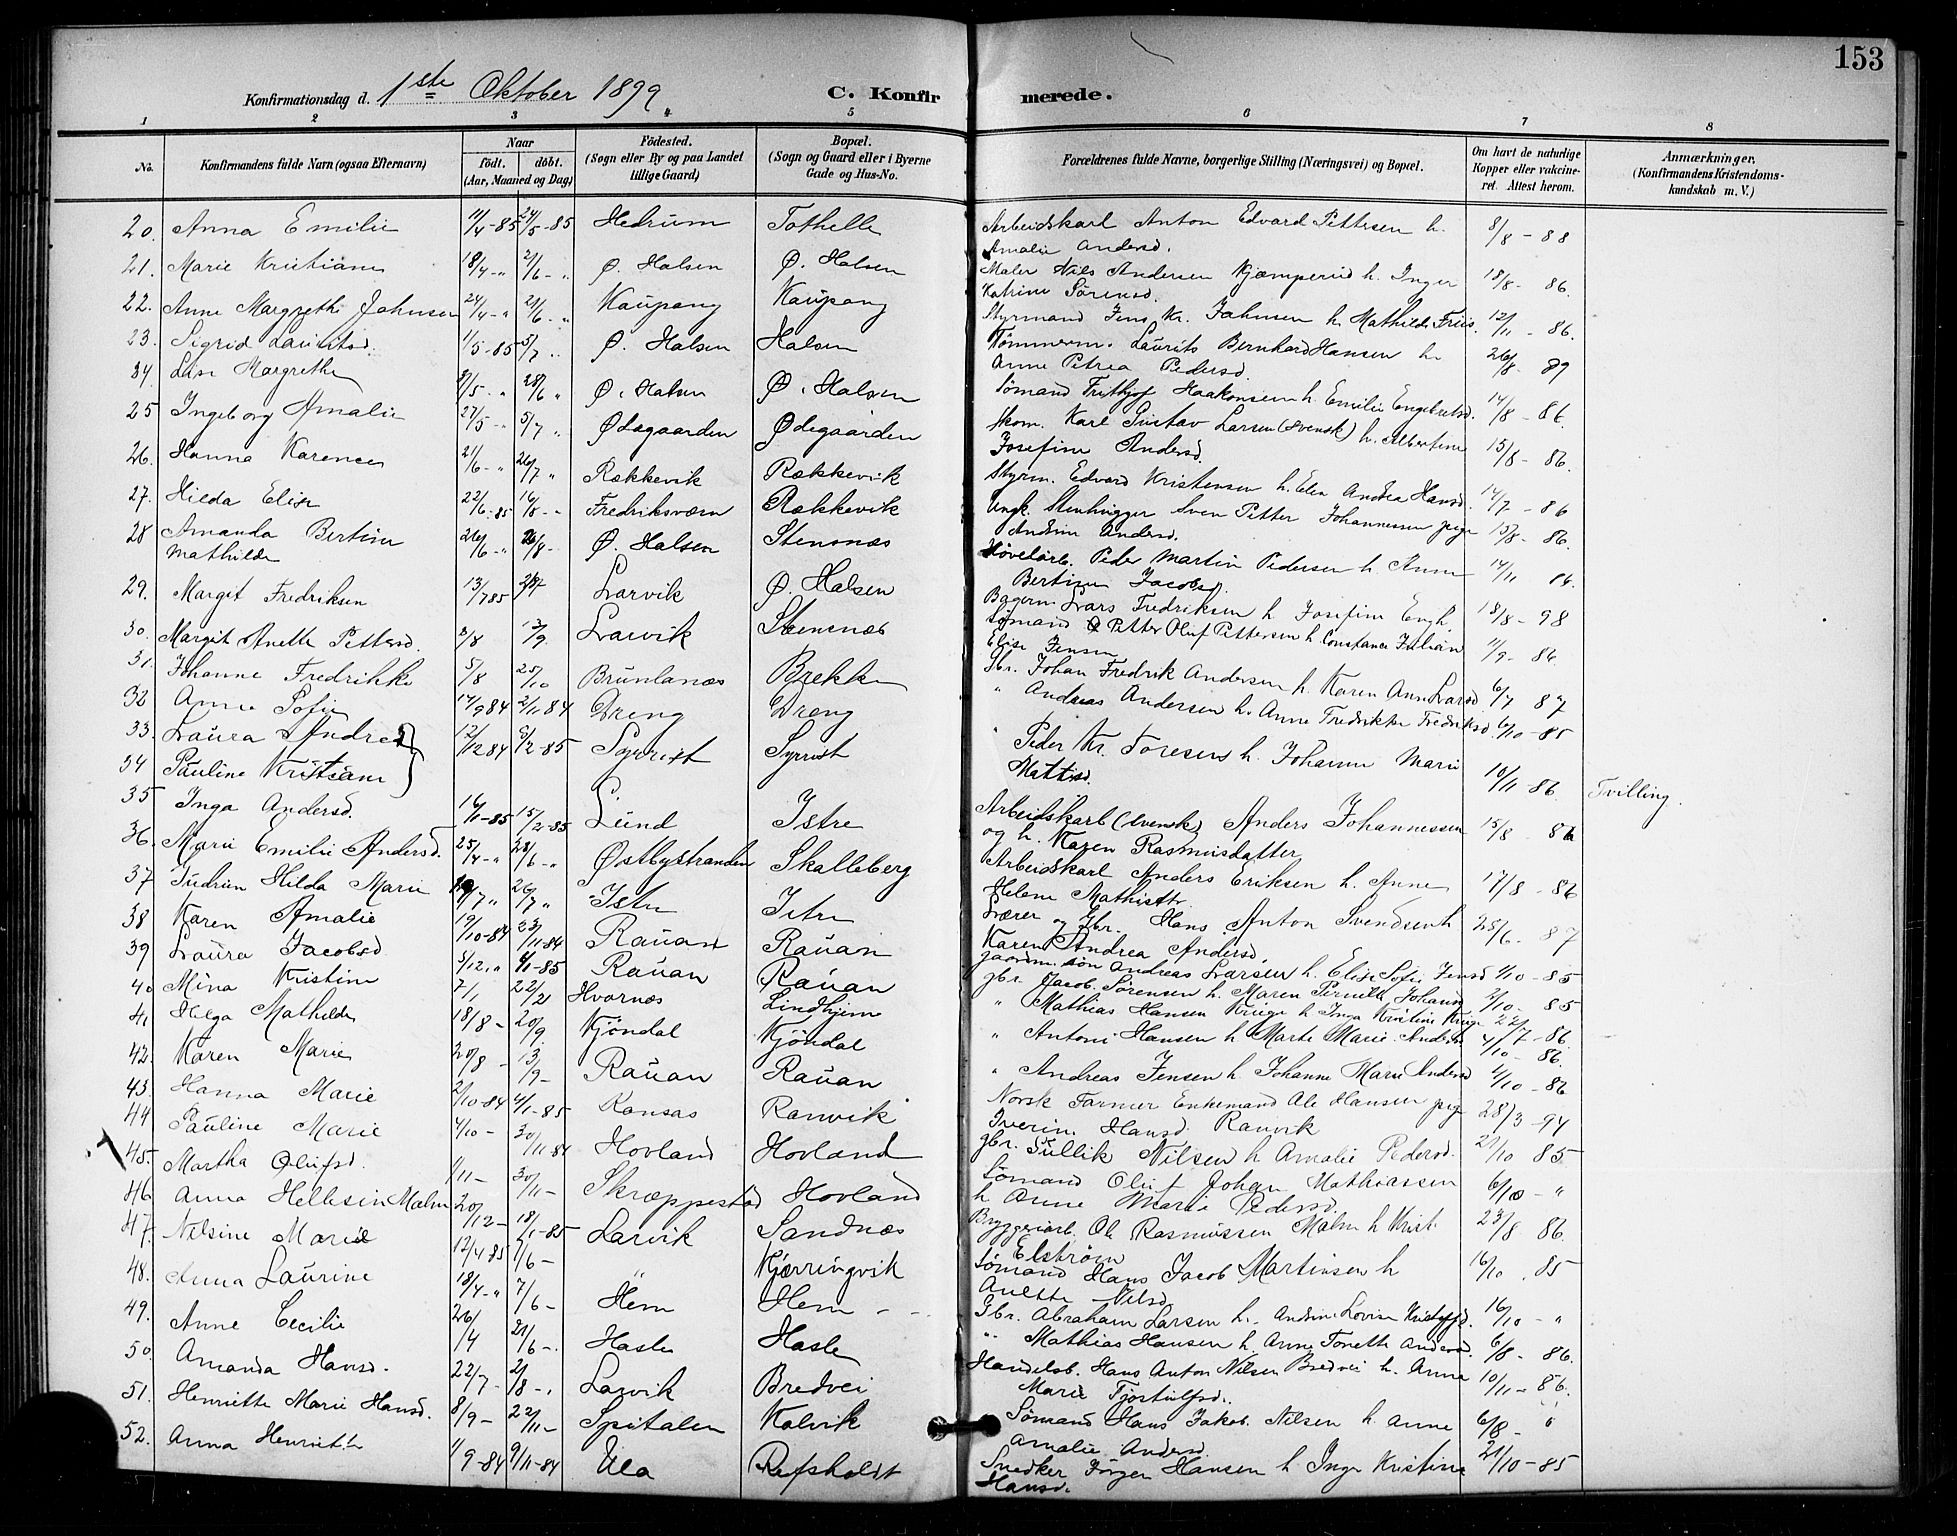 153
Konfirmationsdag d. 1ste Oktober 1899. C. Konfirmerede.
1 2 3 4 5 6 7 8
No. Konfirmandens fulde Navn (ogsaa Efternavn) Naar födt. döbt. (Aar, Maaned og Dag) Födested. (Sogn eller By og paa Landet tillige Gaard) Bopæl. (Sogn og Gaard eller i Byerne Gade og Hus-No. Forældrenes fulde Navne, borgerlige Stilling (Næringsvei) og Bopæl. Om havt de naturlige Kopper eller vakcineret. Attest herom. Anmærkninger, (Konfirmandens Kristendomskundskab m. V.)
20. Anna Emilie 11/4-85 24/5-85 Hedrum Tothelle Arbeidskarl Anton Edvard Pettersen h. 8/8-88
Amalie Andersd.
21. Marie Kristiane 18/4-" 21/6-" Ø. Halsen Ø. Halsen Maler Nils Andersen Kjæmperud h. Inger 18/8-86.
Katrine Sörensd.
22. Anne Margrethe Johnsen 24/4-" 21/6-" Kaupang Kaupang Styrmand Jens Kr. Johnsen h. Mathilde Friis. 12/11-86.
23. Sigrid Lauritsd. 1/5-85 5/7" Ø. Halsen Halsen Tömmerm. Laurits Bernhard Hansen h. 26/8-89
Anne Petrea Pedersd.
24. Lise Margrethe 28/6" Ø. Halsen Ø. Halsen Sömand Frithjof Haakonsen h. Emilie Engebretsd. 14/8-86.
25 Ingeborg Amalie 27/5-" 5/7" Ødegaarden Ødegaarden Skom. Karl Gustav Larsen (svensk) h. Albertine 15/8-86.
Josefine Andersd.
26. Hanna Karence 21/6-" 26/7" Rækkevik Rækkevik Styrm. Edvard Kristensen h. Elen Andrea Hansd. 14/7-86
27. Hilda Elise 22/6-85 16/8-" Fredriksværn Rækkevik Ungk. Stenhugger Sven Petter Johannessen pige 15/8-86.
Andrine Andersd.
28 Amanda Bertine 26/6-" /8- Ø. Halsen Stensnæs Hövelarb. Peder Martin Pedersen h. Anne 14/11 86.
Mathilde Bertine Jacobsd.
29. Margit Fredriksen 13/785 Larvik Ø. Halsen Bagerm. Lars Fredriksen h. Josefine Engh. 18/8-98
30. Margit Anette Pettersd. 2/8 13/9. Larvik Stensnæs Sömand Petter Oluf Pettersen h. Constance Juliane 11/9-86.
Elise Jensen
31. Johanne Fredrikke 5/8 25/10 Brunlanæs Brekke Gbr. Johan Fredrik Andersen h. Karen Anne Larsd. 6/7 87
32 Anne Sofie 14/984 2/1184 Dreng Dreng " Andreas Andersen h. Anne Fredrikke Fredriksd. 6/10-85
33. Laura Andrea 12/1284 8/2-85 Syrrist Syrrist " Peder Kr. Toresen h. Johanne Marie
34 Pauline Kristiane Mattisd. 16/11-86. Tvilling.
35 Inga Andersd. 16/1-85 15/2-85 Lund Istre Arbeidskarl (svensk) Anders Johannessen 15/8-86
og h. Karen Rasmusdatter
36. Marie Emilie Andersd. 25/4-" 28/6-" Østbystranden Skalleberg Arbeidskarl Anders Eriksen h. Anne 17/8-86
Helene Mathisdtr.
37 Gudrun Hilda Marie /7" 26/7" Istre Istre Lærer og Gbr. Hans Anton Svendsen h. 25/6-87
Karen Andrea Andersd.
38 Karen Amalie 19/10-84 23/11-84 Rauan Rauan Gaardm. sön Andreas Larsen h. Elise Sofie Jensd. 4/10-85
39 Laura Jacobsd. 5/12." 4/1-85 Rauan Rauan Gbr. Jacob Sörensen h. Maren Pernille Johansd. 2/10-85
40 Mina Kristine 7/1 22/2 Hvarnæs Lindhjem " Mathias Hansen Kruge h. Inga Kristine Kruge 22/7-86.
41. Helga Mathilde 18/8- 20/9. Kjöndal Kjöndal " Anton Hansen h. Marte Marie Andersd. 4/10-86.
42. Karen Marie 20/8- 13/9- Rauan Rauan " Andreas Jensen h. Johanne Marie Andersd. 4/10-86
43. Hanna Marie 2/10-84 4/1-85 Kansas Ranvik Norsk Farmer Enkemand Ole Hansen pige 28/3-94
Iverine Hansd. Ranvik
44 Pauline Marie 4/10- 30/11-84 Hovland Hovland Gbr. Tullik Nilsen h. Amalie Pedersd. 21/10 85
45. Martha Olufsd. 1/11- 30/11- Skræppestad Hovland Sömand Oluf Johan Mathiassen 6/10-"
h. Anne Marie Pedersd.
46 Anna Hellesine Malm 20/12- 18/1-85 Larvik Sandnæs Bryggeriarb. Ole Rasmussen Malm h. Krist. 23/8 86.
Elström
47. Nilsine Marie 12/4-85 7/6- " Kjærringvik Sömand Hans Jacob Martinsen h. 16/10.85
Anette Nilsd.
48. Anna Laurine 18/4-" 7/6- Hem Hem Gbr. Abraham Larsen h. Andrine Lovise Kristoffd. 16/10-"
49. Anne Cecilie 26/4 21/6- Hasle Hasle " Mathias Hansen h. Anne Torette Andersd. 6/8-86.
50. Amanda Hansd. 22/7- 21/8-. Larvik Bredvei Handelsb. Hans Anton Nilsen Bredvei h. Anna 10/11-86.
Marie Tjöstulfsd.
51. Henriette Marie Hansd. 8/9- 22/11- Spitalen Kalvik Sömand Hans Jakob Nilsen h. Anne 6/8- "
Amalie Andersd.
52. Anna Henriette 1/9-84 9/11-84 Ula Refsholdt Snedker Jörgen Hansen h. Inge Kristine 21/10-85
Hansd.